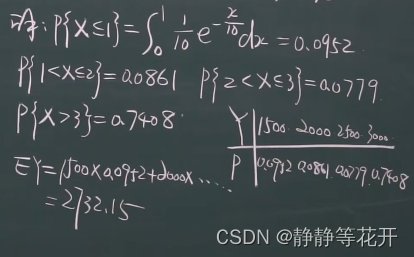 解:P{X≤1}=∫₀¹ 1/10 e^(-x/10) dx=0.0952.
P{1<X≤2}=0.0861 P{2<X≤3}=0.0779.
P{X>3}=0.7408.
Y 1500. 2000 2500. 3000.
P 0.0952 0.0861 0.0779. 0.7408
EY=1500×0.0952+2000×......
=2732.15
CSDN @静静等花开